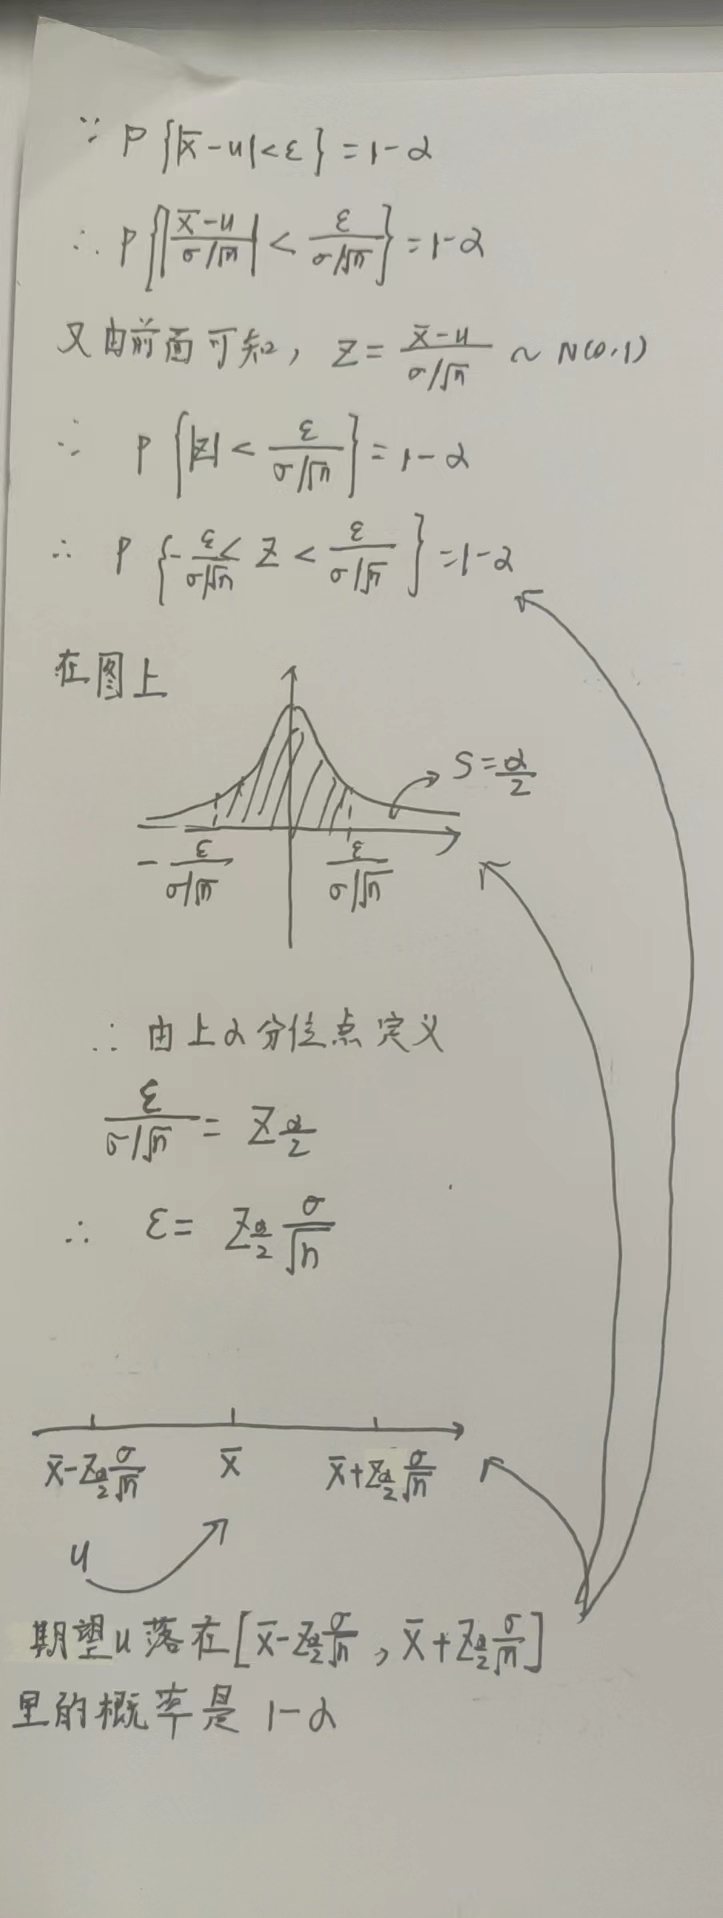 ∵ P{|x̄-u|<ε}=1-α
∴ P{|(x̄-u)/(σ/√n)|<ε/(σ/√n)}=1-α
又由前面可知, Z=(x̄-u)/(σ/√n)~N(0,1)
∴ P{|Z|<ε/(σ/√n)}=1-α
∴ P{-ε/(σ/√n)<Z<ε/(σ/√n)}=1-α
在图上
S=α/2
-ε/(σ/√n) ε/(σ/√n)
∴ 由上α分位点定义
ε/(σ/√n)=Z_(α/2)
∴ ε=Z_(α/2) σ/√n
x̄-Z_(α/2) σ/√n x̄ x̄+Z_(α/2) σ/√n
u
期望u落在[x̄-Z_(α/2) σ/√n, x̄+Z_(α/2) σ/√n]
里的概率是 1-α